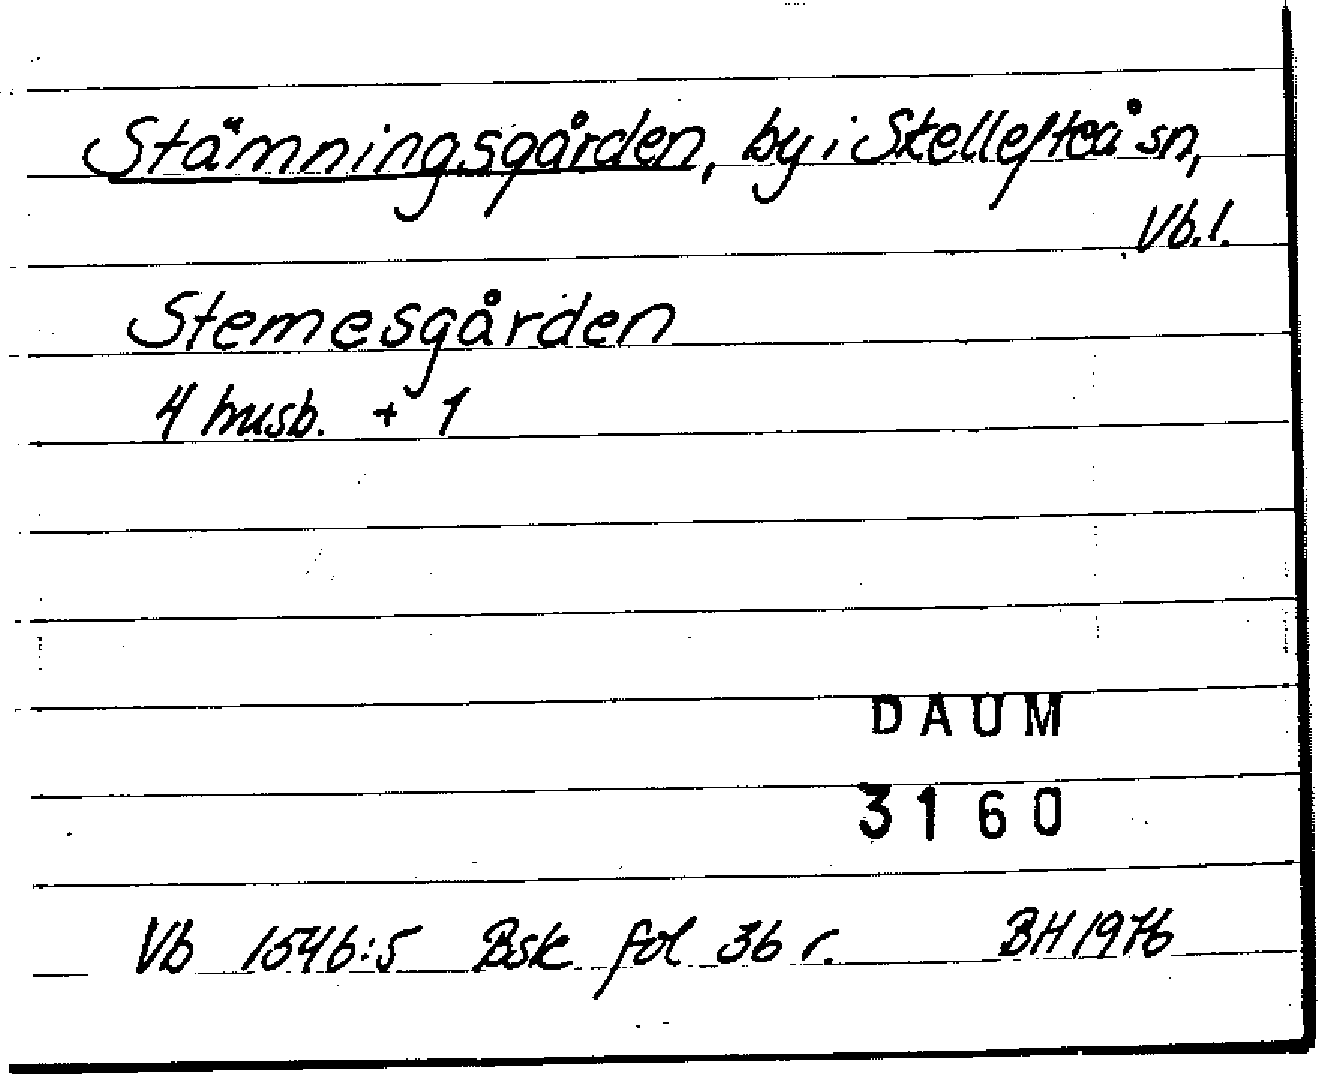 Stämningsgården, by i Skellefteå sn,
Vb.l.
Stemesgården
4 husb. + 1
DAUM
3160
Vb 1546:5 Bsk fol 36 r. BH 1976